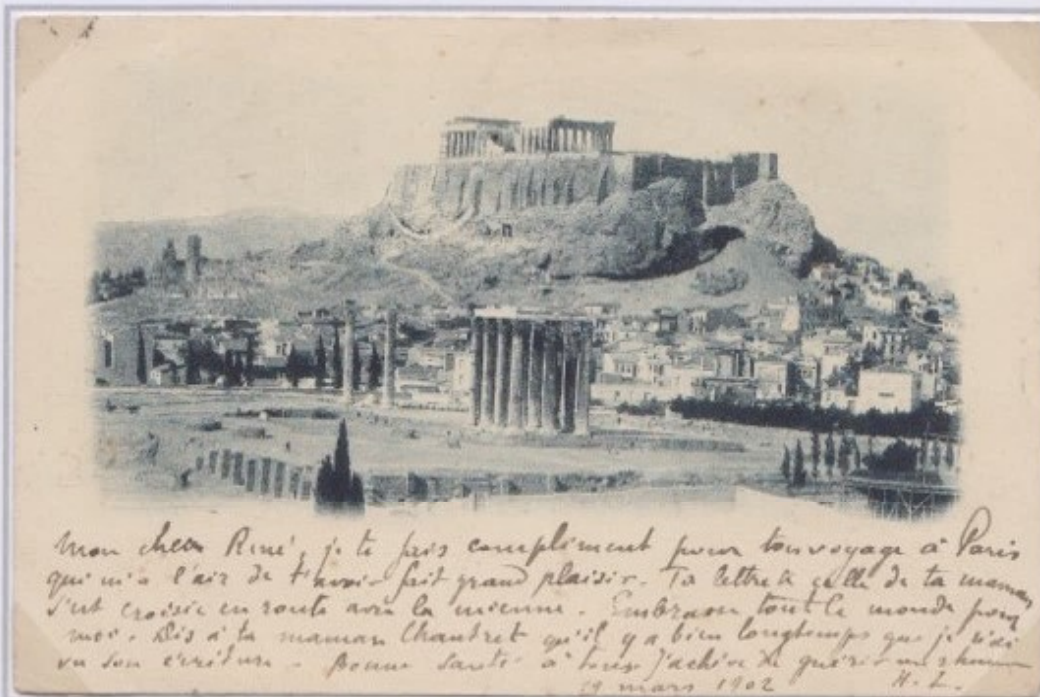 Mon cher René, je te fais compliment pour ton voyage à Paris
qui m'a l'air de t'avoir fait grand plaisir. Ta lettre & celle de ta maman
s'est croisée en route avec la mienne. Embrasse tout le monde pour
moi. Dis à ta maman Chautret qu'il y a bien longtemps que je n'ai
vu son écriture. Bonne santé à tous j'achève de guérir un rhume
19 mars 1902 H. L.